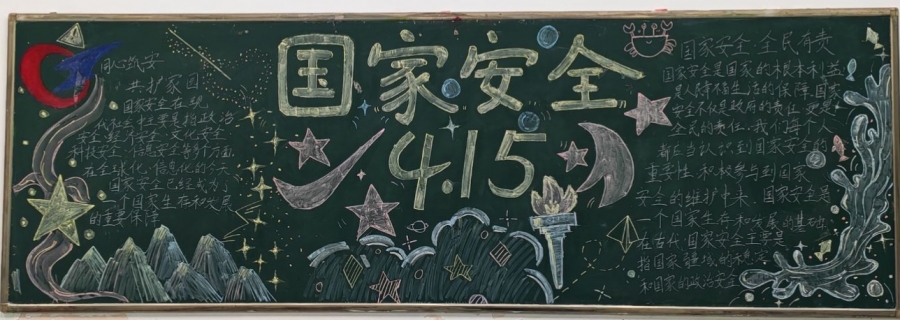 国家安全
4.15
同心筑安
共护家园
国家安全在现
代社会中主要是指政治
安全、经济安全、文化安全
科技安全、信息安全等多个方面
在全球化、信息化的今天
国家安全已经成为了
一个国家生存和发展
的重要保障
国家安全 全民有责
国家安全是国家的根本利益
是人民幸福生活的保障,国家
安全不仅是政府的责任,更是
全民的责任。我们每个人
都应当认识到国家安全的
重要性,积极参与到国家
安全的维护中来。国家安全是
一个国家生存和发展的基础,
在古代国家安全主要是
指国家疆域的
和国家的政治安全